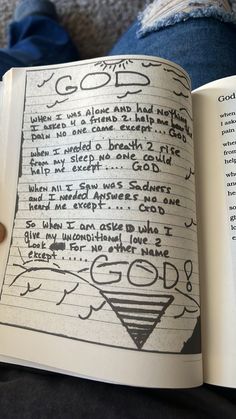 GOD
WHEN I WAS ALONE AND HAD NOTHING
I ASKED 4 A FRIEND 2 HELP me
PAIN NO ONE CAME EXCEPT... GOD
WHEN I needed A BREATH 2 RISE
FROM MY SLEEP NO ONE COULD
HELP ME EXCEPT.... GOD
WHEN ALL I SAW WAS SADNESS
AND I NEEDED ANSWERS NO ONE
HEARD ME EXCEPT..... GOD
SO WHEN I AM ASKED WHO I
GIVE MY UNCONDITIONAL LOVE 2
LOOK FOR NO OTHER NAME
EXCEPT.....
GOD!
God
when
I aske
pain
when
from
help
when
and
hear